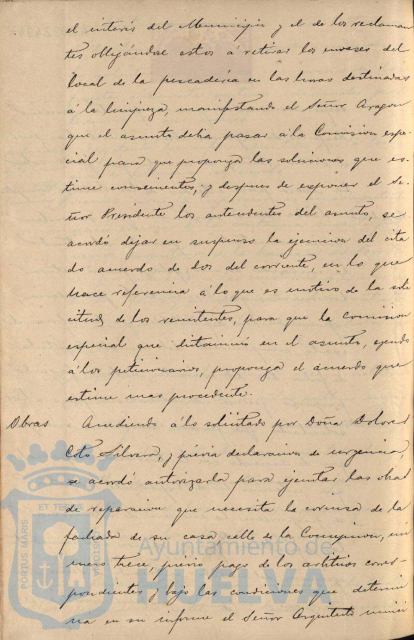 el interés del Municipio y el de los reclaman
tes obligándose estos á retirar los envases del
local de la pescadería en las horas destinadas
á la limpieza, manifestando el Señor Aragon
que el asunto debia pasar á la Comision espe-
cial para que proponga las soluciones que es-
time convenientes, y despues de exponer el Se-
ñor Presidente los antecedentes del asunto, se
acordó dejar en suspenso la ejecucion del cita
do acuerdo de dos del corriente, en lo que
hace referencia á lo que es motivo de la soli
citud de los remitentes, para que la Comision
especial que dictaminó en el asunto, oyendo
á los peticionarios, proponga el acuerdo que
estime mas procedente.
Obras
Accediendo á lo solicitado por Doña Dolores
Coto y previa declaracion de urgencia,
se acordó autorizarla para ejecutar las obras
de reparacion que necesita la cornisa de la
fachada de su casa calle de la Concepcion, nú
mero trece, previo pago de los arbitrios corres-
pondientes y bajo las condiciones que determi
na en su informe el Señor Arquitecto munici
PORTUS MARIS
ET TERRÆ
CUSTODIA
Ayuntamiento de
HUELVA